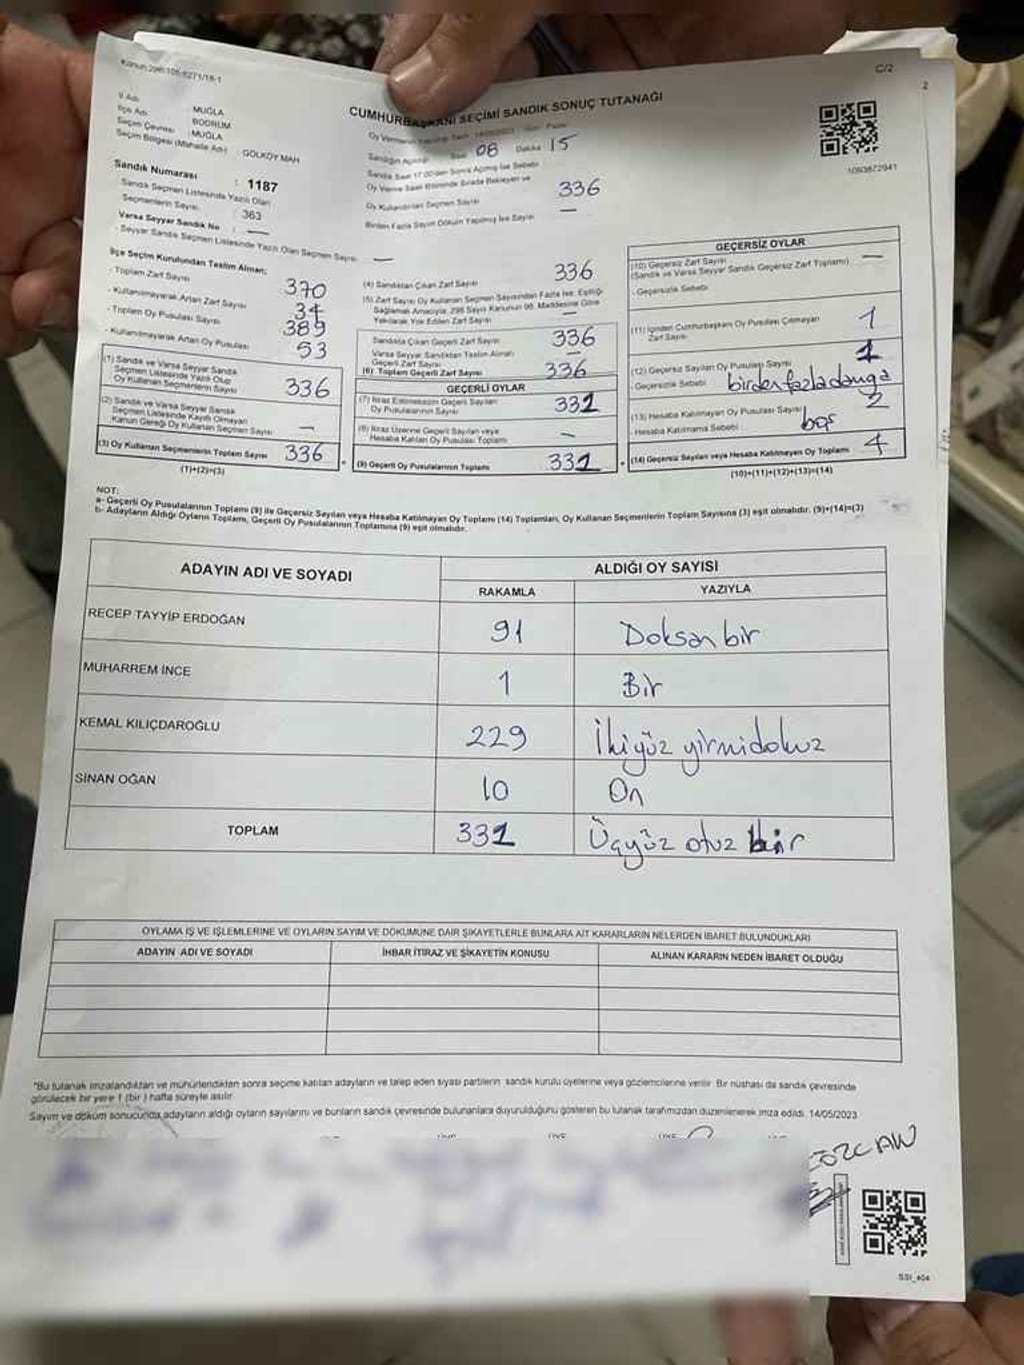 Kanun:298/105-6271/18-1
C/2
2
CUMHURBAŞKANI SEÇİMİ SANDIK SONUÇ TUTANAĞI
İl Adı MUĞLA
İlçe Adı BODRUM
Seçim Çevresi : MUĞLA
Seçim Bölgesi (Mahalle Adı) : GÖLKÖY MAH
Sandık Numarası : 1187
Sandık Seçmen Listesinde Yazılı Olan
Seçmenlerin Sayısı : 363
Varsa Seyyar Sandık No : —
- Seyyar Sandık Seçmen Listesinde Yazılı Olan Seçmen Sayısı —
Sandığın Açılışı Saat 08 Dakika 15
Sandık Saat 17.00'den Sonra Açılmış İse Sebebi
Oy Verme Saati Bitiminde Sırada Bekleyen ve
Oy Kullandırılan Seçmen Sayısı 336
Birden Fazla Sayım Döküm Yapılmış İse Sayısı —
1093872941
İlçe Seçim Kurulundan Teslim Alınan;
- Toplam Zarf Sayısı 370
- Kullanılmayarak Artan Zarf Sayısı 34
- Toplam Oy Pusulası Sayısı 389
- Kullanılmayarak Artan Oy Pusulası 53
(1) Sandık ve Varsa Seyyar Sandık
Seçmen Listesinde Yazılı Olup
Oy Kullanan Seçmenlerin Sayısı 336
(2) Sandık ve Varsa Seyyar Sandık
Seçmen Listesinde Kayıtlı Olmayan
Kanun Gereği Oy Kullanan Seçmen Sayısı —
(3) Oy Kullanan Seçmenlerin Toplam Sayısı 336
(1)+(2)=(3)
(4) Sandıktan Çıkan Zarf Sayısı 336
(5) Zarf Sayısı Oy Kullanan Seçmen Sayısından Fazla İse; Eşitliği
Sağlamak Amacıyla, 298 Sayılı Kanunun 98. Maddesine Göre
Yakılarak Yok Edilen Zarf Sayısı —
Sandıkta Çıkan Geçerli Zarf Sayısı 336
Varsa Seyyar Sandıktan Teslim Alınan
Geçerli Zarf Sayısı —
(6) Toplam Geçerli Zarf Sayısı 336
GEÇERLİ OYLAR
(7) İtiraz Edilmeksizin Geçerli Sayılan
Oy Pusulalarının Sayısı 331
(8) İtiraz Üzerine Geçerli Sayılan veya
Hesaba Katılan Oy Pusulası Toplamı —
(9) Geçerli Oy Pusulalarının Toplamı 331
GEÇERSİZ OYLAR
(10) Geçersiz Zarf Sayısı —
(Sandık ve Varsa Seyyar Sandık Geçersiz Zarf Toplamı)
- Geçersizlik Sebebi
(11) İçinden Cumhurbaşkanı Oy Pusulası Çıkmayan
Zarf Sayısı 1
(12) Geçersiz Sayılan Oy Pusulası Sayısı 1
- Geçersizlik Sebebi birden fazla damga
(13) Hesaba Katılmayan Oy Pusulası Sayısı 2
- Hesaba Katılmama Sebebi boş
(14) Geçersiz Sayılan veya Hesaba Katılmayan Oy Toplamı 4
(10)+(11)+(12)+(13)=(14)
NOT:
a- Geçerli Oy Pusulalarının Toplamı (9) ile Geçersiz Sayılan veya Hesaba Katılmayan Oy Toplamı (14) Toplamları, Oy Kullanan Seçmenlerin Toplam Sayısına (3) eşit olmalıdır. (9)+(14)=(3)
b- Adayların Aldığı Oyların Toplamı, Geçerli Oy Pusulalarının Toplamına (9) eşit olmalıdır.
ADAYIN ADI VE SOYADI ALDIĞI OY SAYISI
RAKAMLA YAZIYLA
RECEP TAYYİP ERDOĞAN 91 Doksan bir
MUHARREM İNCE 1 Bir
KEMAL KILIÇDAROĞLU 229 İkiyüz yirmidokuz
SİNAN OĞAN 10 On
TOPLAM 331 Üçyüz otuz bir
OYLAMA İŞ VE İŞLEMLERİNE VE OYLARIN SAYIM VE DÖKÜMÜNE DAİR ŞİKAYETLERLE BUNLARA AİT KARARLARIN NELERDEN İBARET BULUNDUKLARI
ADAYIN ADI VE SOYADI İHBAR İTİRAZ VE ŞİKAYETİN KONUSU ALINAN KARARIN NEDEN İBARET OLDUĞU
*Bu tutanak imzalandıktan ve mühürlendikten sonra seçime katılan adayların ve talep eden siyasi partilerin sandık kurulu üyelerine veya gözlemcilerine verilir. Bir nüshası da sandık çevresinde
görülecek bir yere 1 (bir) hafta süreyle asılır.
Sayım ve döküm sonucunda adayların aldığı oyların sayılarını ve bunların sandık çevresinde bulunanlara duyurulduğunu gösteren bu tutanak tarafımızdan düzenlenerek imza edildi. 14/05/2023
SSI_404